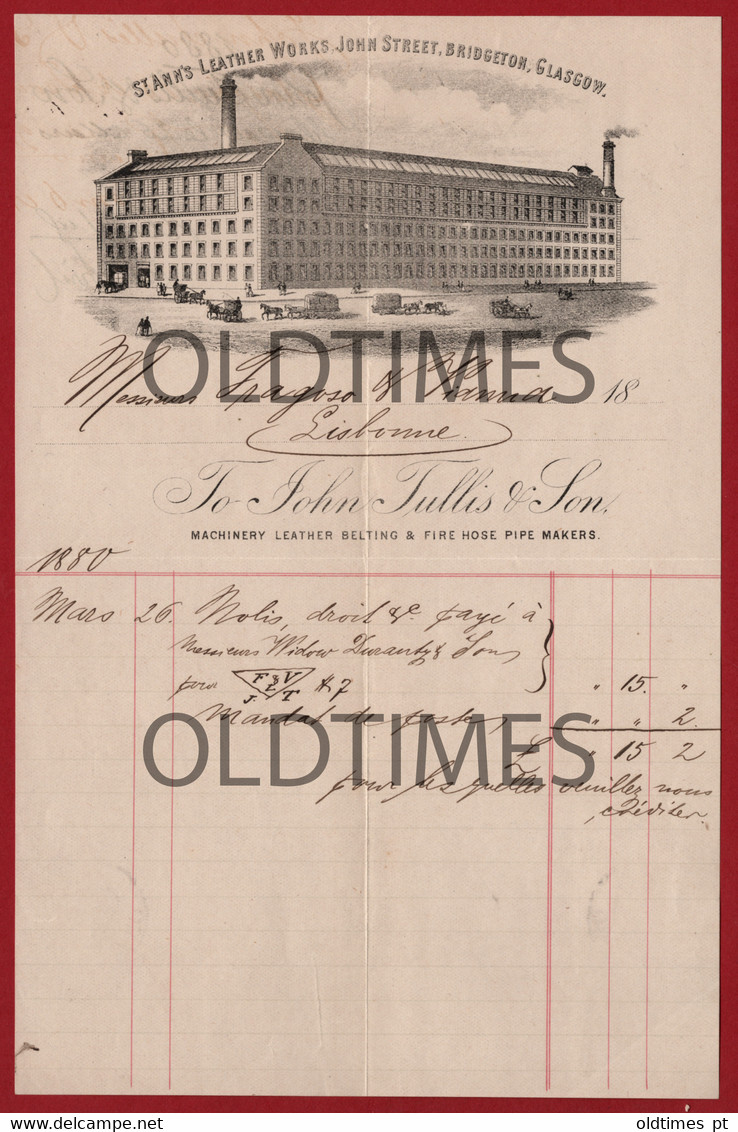 ST ANN'S LEATHER WORKS, JOHN STREET, BRIDGETON, GLASGOW.
OLDTIMES
Messieurs Fragoso & Vianna 18
Lisbonne.
To John Tullis & Son,
MACHINERY LEATHER BELTING & FIRE HOSE PIPE MAKERS.
1880
Mars 26. Nolis, droit &c. payé à
Messieurs Widow Durantz & Son,
pour F & V # 7 " 15. "
L
J. T
Mandat de poste, " " 2.
OLDTIMES
£ " 15 2
pour lesquelles veuillez nous
créditer.
oldtimes pt